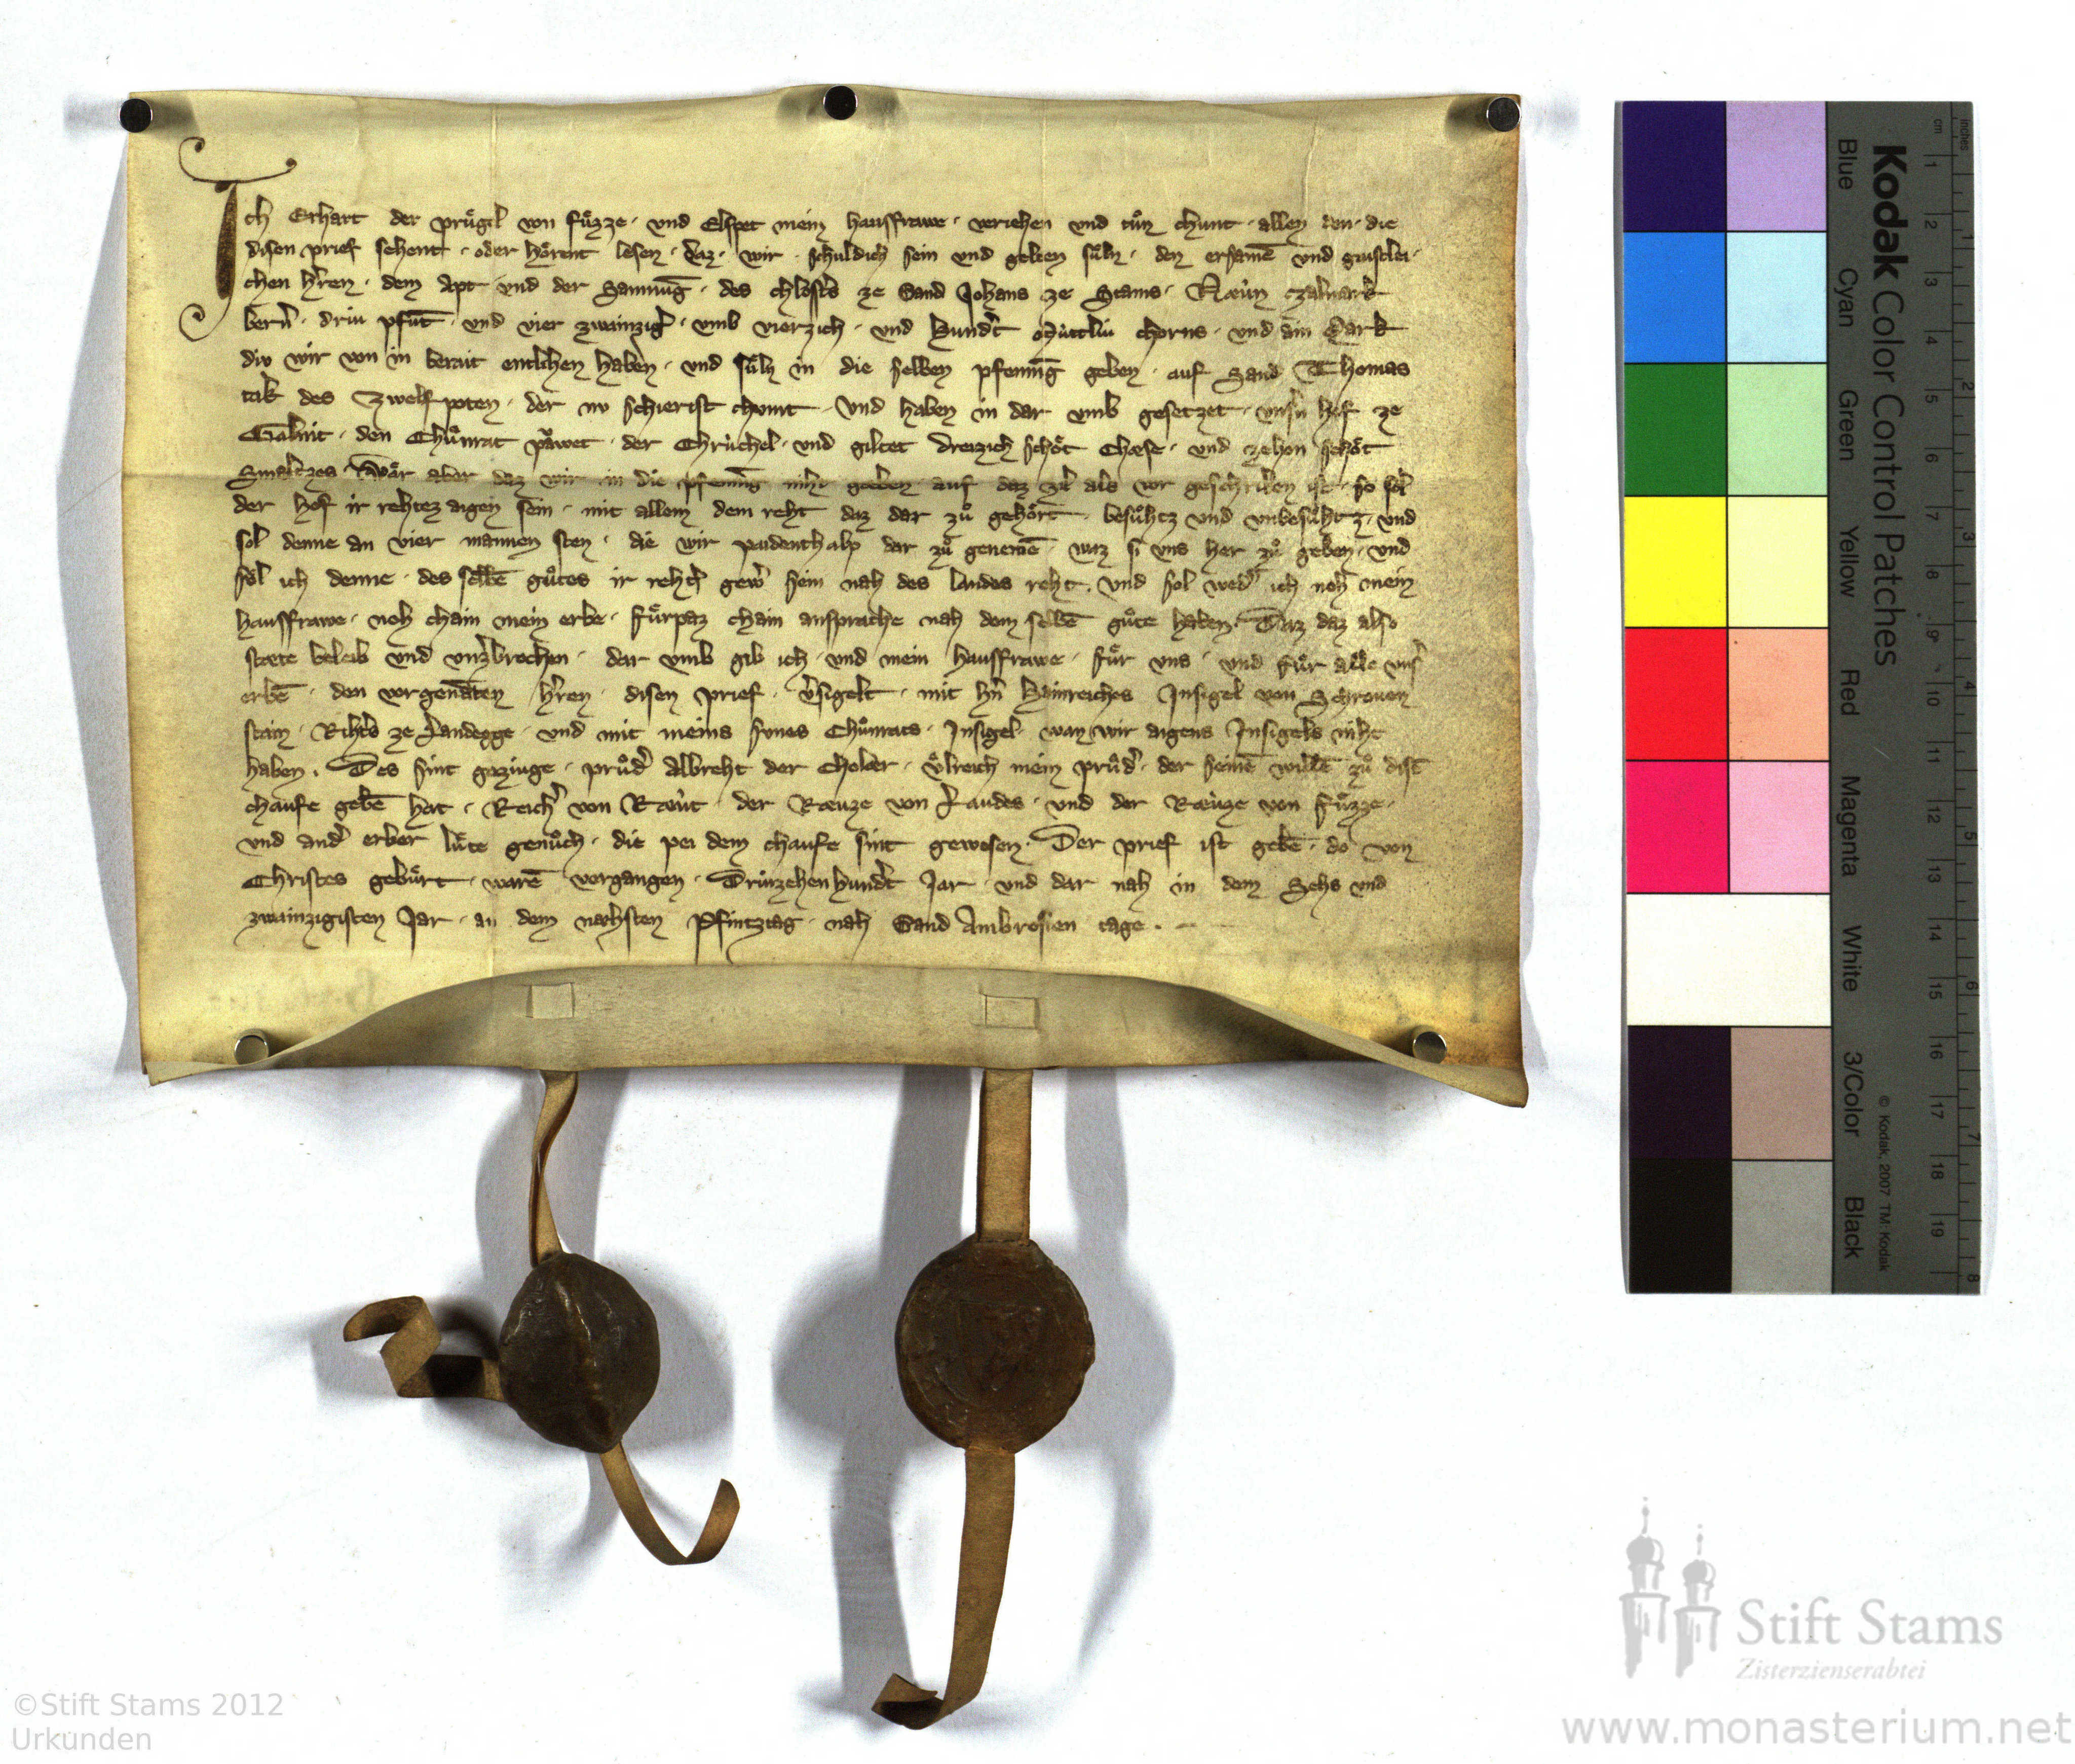 Ich Erhart der prügil von füzze · und Elspet mein hausfrawe · veriehen und tůn chunt · allen den · die
disen prief sehent · oder hörent lesen · daz · wir · schuldich sein und gelten süln · den ersamē und gaistlei·
chen h̕ren · dem Apt und der Samnūg · des chlost̕s ze Sand Johans ze Stams ·
bern̕ · driu pfūt · und vier zwainzig̕ · umb vierzich · und Hund̕t Müttliu chorns · und ain Mark
div wir von in berait entlehen haben · und süln in die selben pfennīg geben · auf Sand Thomas
tak des Zwelfpoten · der nv schierist chumt · Und haben in dar umb gesetzet · unsn̕ hof ze
den Chůnrat páwet · der Chrüchel · und giltet dreizich schöt Chæse · und zehen schöt
Smaltzes · Wär aber daz wir in die pfennīg niht geeben auf daz zil als vor geschriben ist · so sol
der hof ir rehtez aigen sein · mit allem dem reht daz dar zů gehört · besůhtz und unbesůhtz · und
sol denne an vier mannen sten · die wir paidenthalb dar zů genemē · waz si uns her zů geben · und
sol ich denne · des selbē gůtes ir reht̕ gew̕ sein nah des landes reht · und sol wed̕ ich noh mein
hausfrawe · noh chain mein erbe · fürpaz chain ansprache nah dem selbē gůte haben · Daz daz also
stæte beleib und unz̕brochen · dar umb gib ich · und mein hausfrawe · für uns · und für alle uns̕
erbē · den vorgenāten h̕ren · disen prief · v̕sigelt · mit hn̕ Hainreiches Insigel von Schroven
stain · Riht̕s ze Landegge · und mit meins svnes Chůnrats · Insigel · wan wir aigens Insigels niht
haben · Des sint geziuge · průd̕ Albreht der Cholær · Ůlreich mein průd̕ · der seinē willē zů disē
chaufe gebē hat · Reich̕ von Ræut · der Ræuze von Landes · und der Ræuze von füzze ·
und and̕ erber lüte genůch · die pei dem chaufe sint gewesen · Der prief ist gebē · do von
Christes gebürt · warē vergangen · Driuzehenhund̕t Jar · und dar nah in dem Sehs und
zwainzigisten Jar · an dem næhsten Pfintztag · nah Sand Ambrosien tage ·
Kodak Color Control Patches
Blue Cyan Green Yellow Red Magenta White 3/Color Black
© Kodak, 2007 TM: Kodak
cm 1 2 3 4 5 6 7 8 9 10 11 12 13 14 15 16 17 18 19
inches 1 2 3 4 5 6 7 8
Stift Stams
Zisterzienserabtei
©Stift Stams 2012
Urkunden
www.monasterium.net